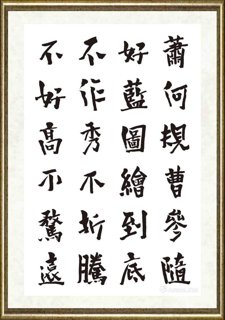 蕭何規曹參隨
好藍圖繪到底
不作秀不折騰
不好高不騖遠